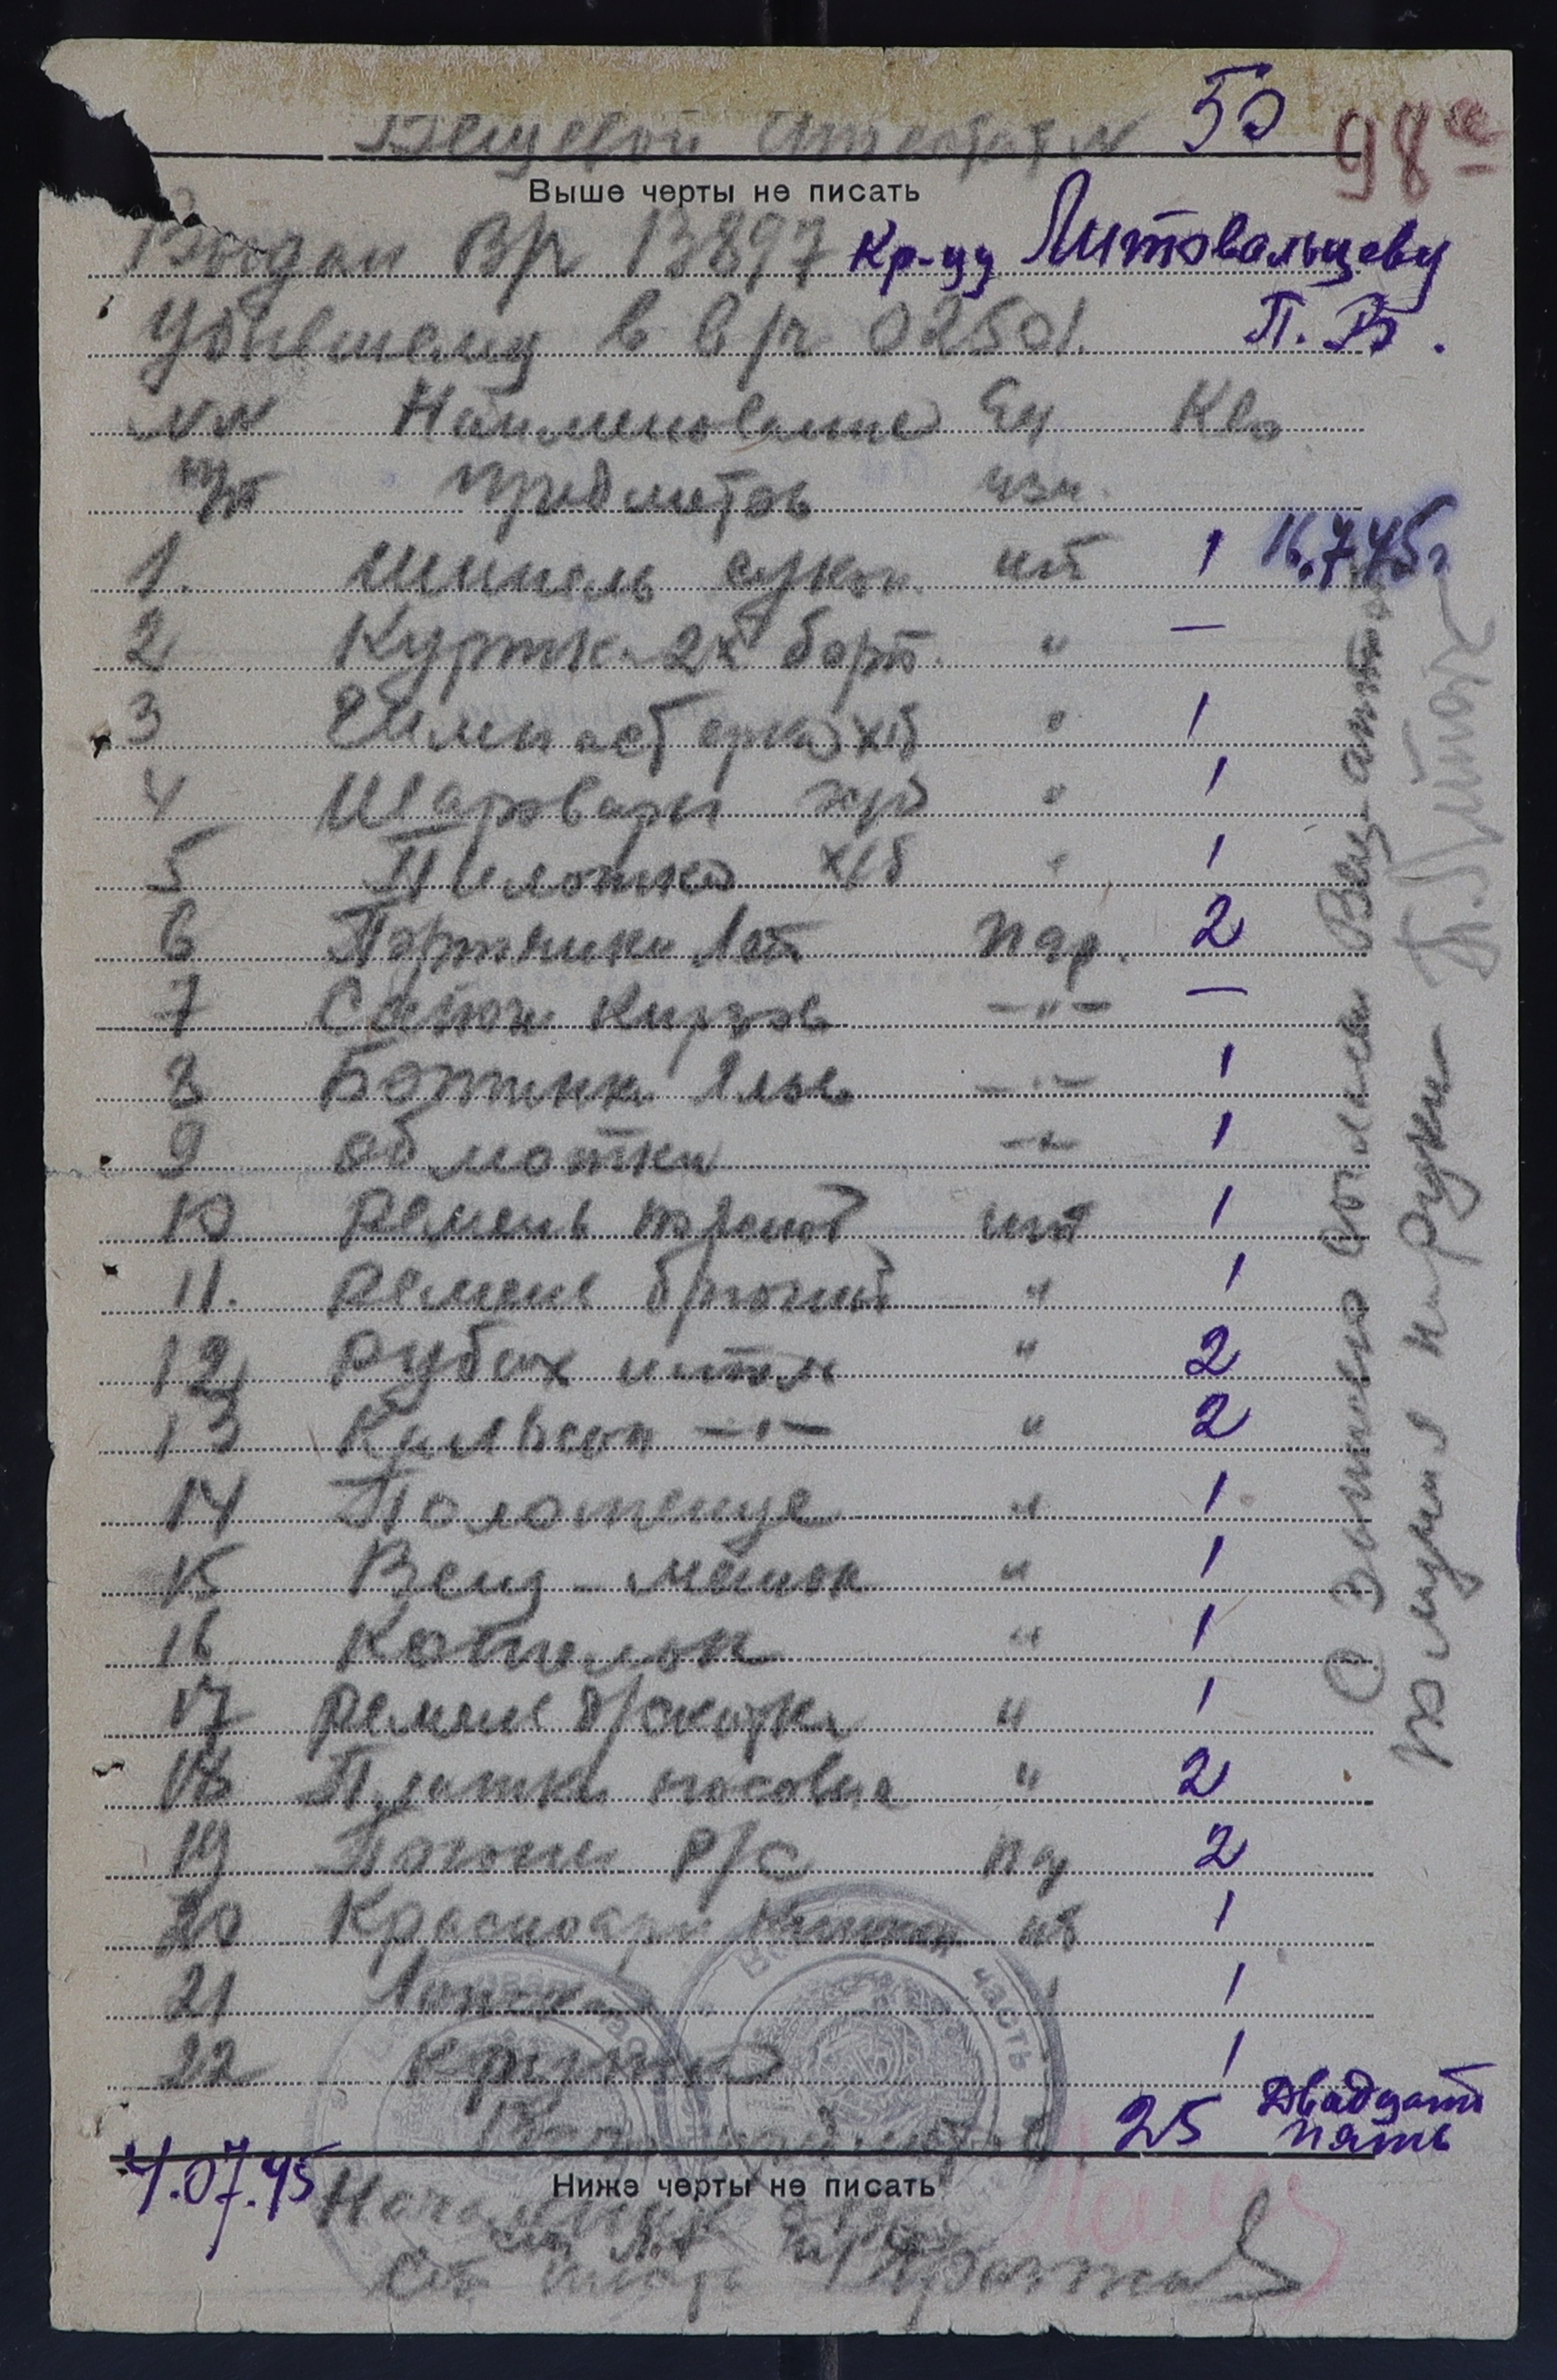 Вещевой Аттестат № 50 98
Выше черты не писать
Выдан В/ч 13897 Кр-цу Литовальцеву
Убывшему в в/ч 02501. П. В.
№№ Наименование Ед К-во
пп предметов изм.
1. Шинель сукон. шт 1 16.7.45г
2 Куртк. 2х борт. " —
3 Гимнастерка х/б " 1
4 Шаровары х/б " 1
5 Пилотка х/б " 1
6 Портянки лет пар. 2
7 Сапоги кирзов —"— —
8 Ботинки —"— 1
9 обмотки —"— 1
10 Ремень поясной шт 1
11. Ремень брючный " 1
12 Рубах нател " 2
13 Кальсон —"— " 2
14 Полотенце " 1
15 Вещ-мешок " 1
16 Котелок " 1
17 Ремень д/скатки " 1
18 Платки носовые " 2
19 Погоны р/с пар 2
20 Красноарм книжка шт 1
21 Ложка 1
22 Кружка 1
25 Двадцать
пять
4.07.45
Ниже черты не писать
Начальник
Ст.
Вещ-атт
получил на руки
часть